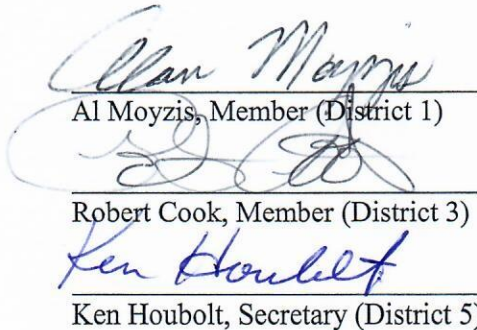 Alan Moyzis
Al Moyzis, Member (District 1)
Robert Cook, Member (District 3)
Ken Houbolt
Ken Houbolt, Secretary (District 5)